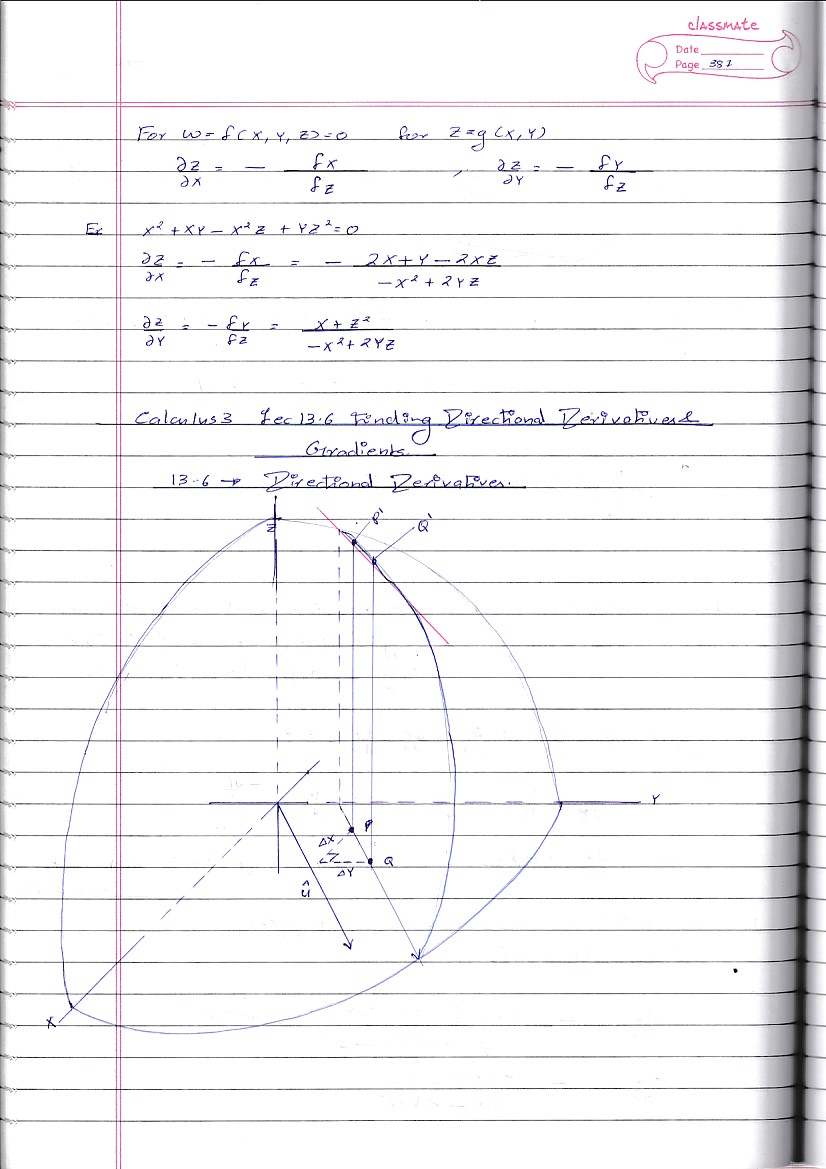 classmate
Date
Page 381
For w = f(x, y, z) = 0 for z = g(x, y)
∂z/∂x = - fx/fz , ∂z/∂y = - fy/fz
Ex x² + xy - x²z + yz² = 0
∂z/∂x = - fx/fz = - (2x + y - 2xz)/(-x² + 2yz)
∂z/∂y = - fy/fz = (x + z²)/(-x² + 2yz)
Calculus 3 Lec 13.6 Finding Directional Derivatives &
Gradients
13.6 → Directional Derivatives.
Z
P'
Q'
Y
P
Δx
Q
Δy
û
X